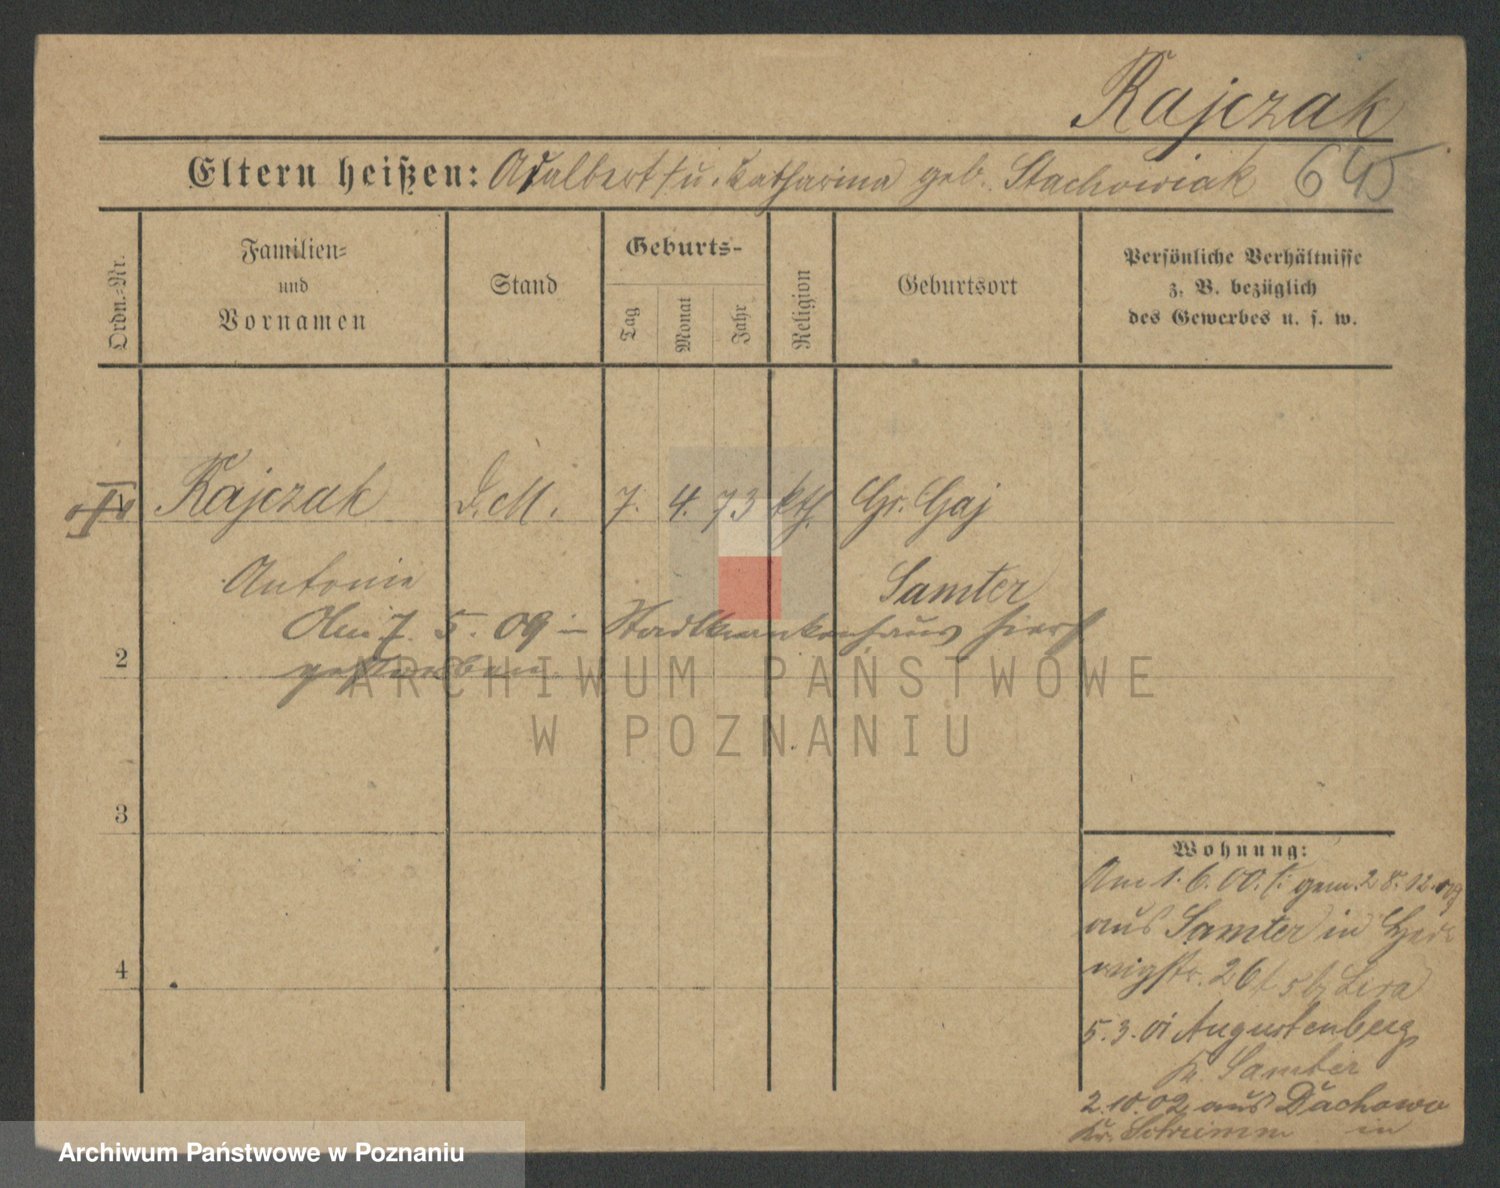 Rajczak
Eltern heißen: Adalbert u. Katharina geb. Stachowiak 645
Ordn.-Nr.
Familien- und Vornamen
Stand
Geburts-
Tag
Monat
Jahr
Religion
Geburtsort
Persönliche Verhältnisse z. B. bezüglich des Gewerbes u. s. w.
Rajczak D.M. 7. 4. 73 kth. Gr. Gaj
Antonie Samter
Am 7. 5. 09 in Stadtkrankenhaus hier
2 gestorben
3
4
Wohnung:
Am 1. 6. 00. gem. 28. 12.
aus Samter in Hed-
wigstr. 26
5. 3. 01 Augustenberg
Kr. Samter
2. 10. 02 aus Dachowo
Kr. Schrimm in
ARCHIWUM PAŃSTWOWE
W POZNANIU
Archiwum Państwowe w Poznaniu